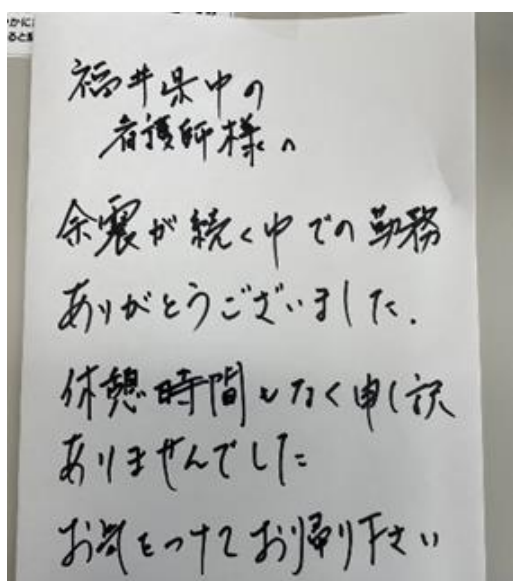 福井県中の
看護師様へ
余震が続く中での勤務
ありがとうございました.
休憩時間もなく申し訳
ありませんでした
お気をつけてお帰り下さい